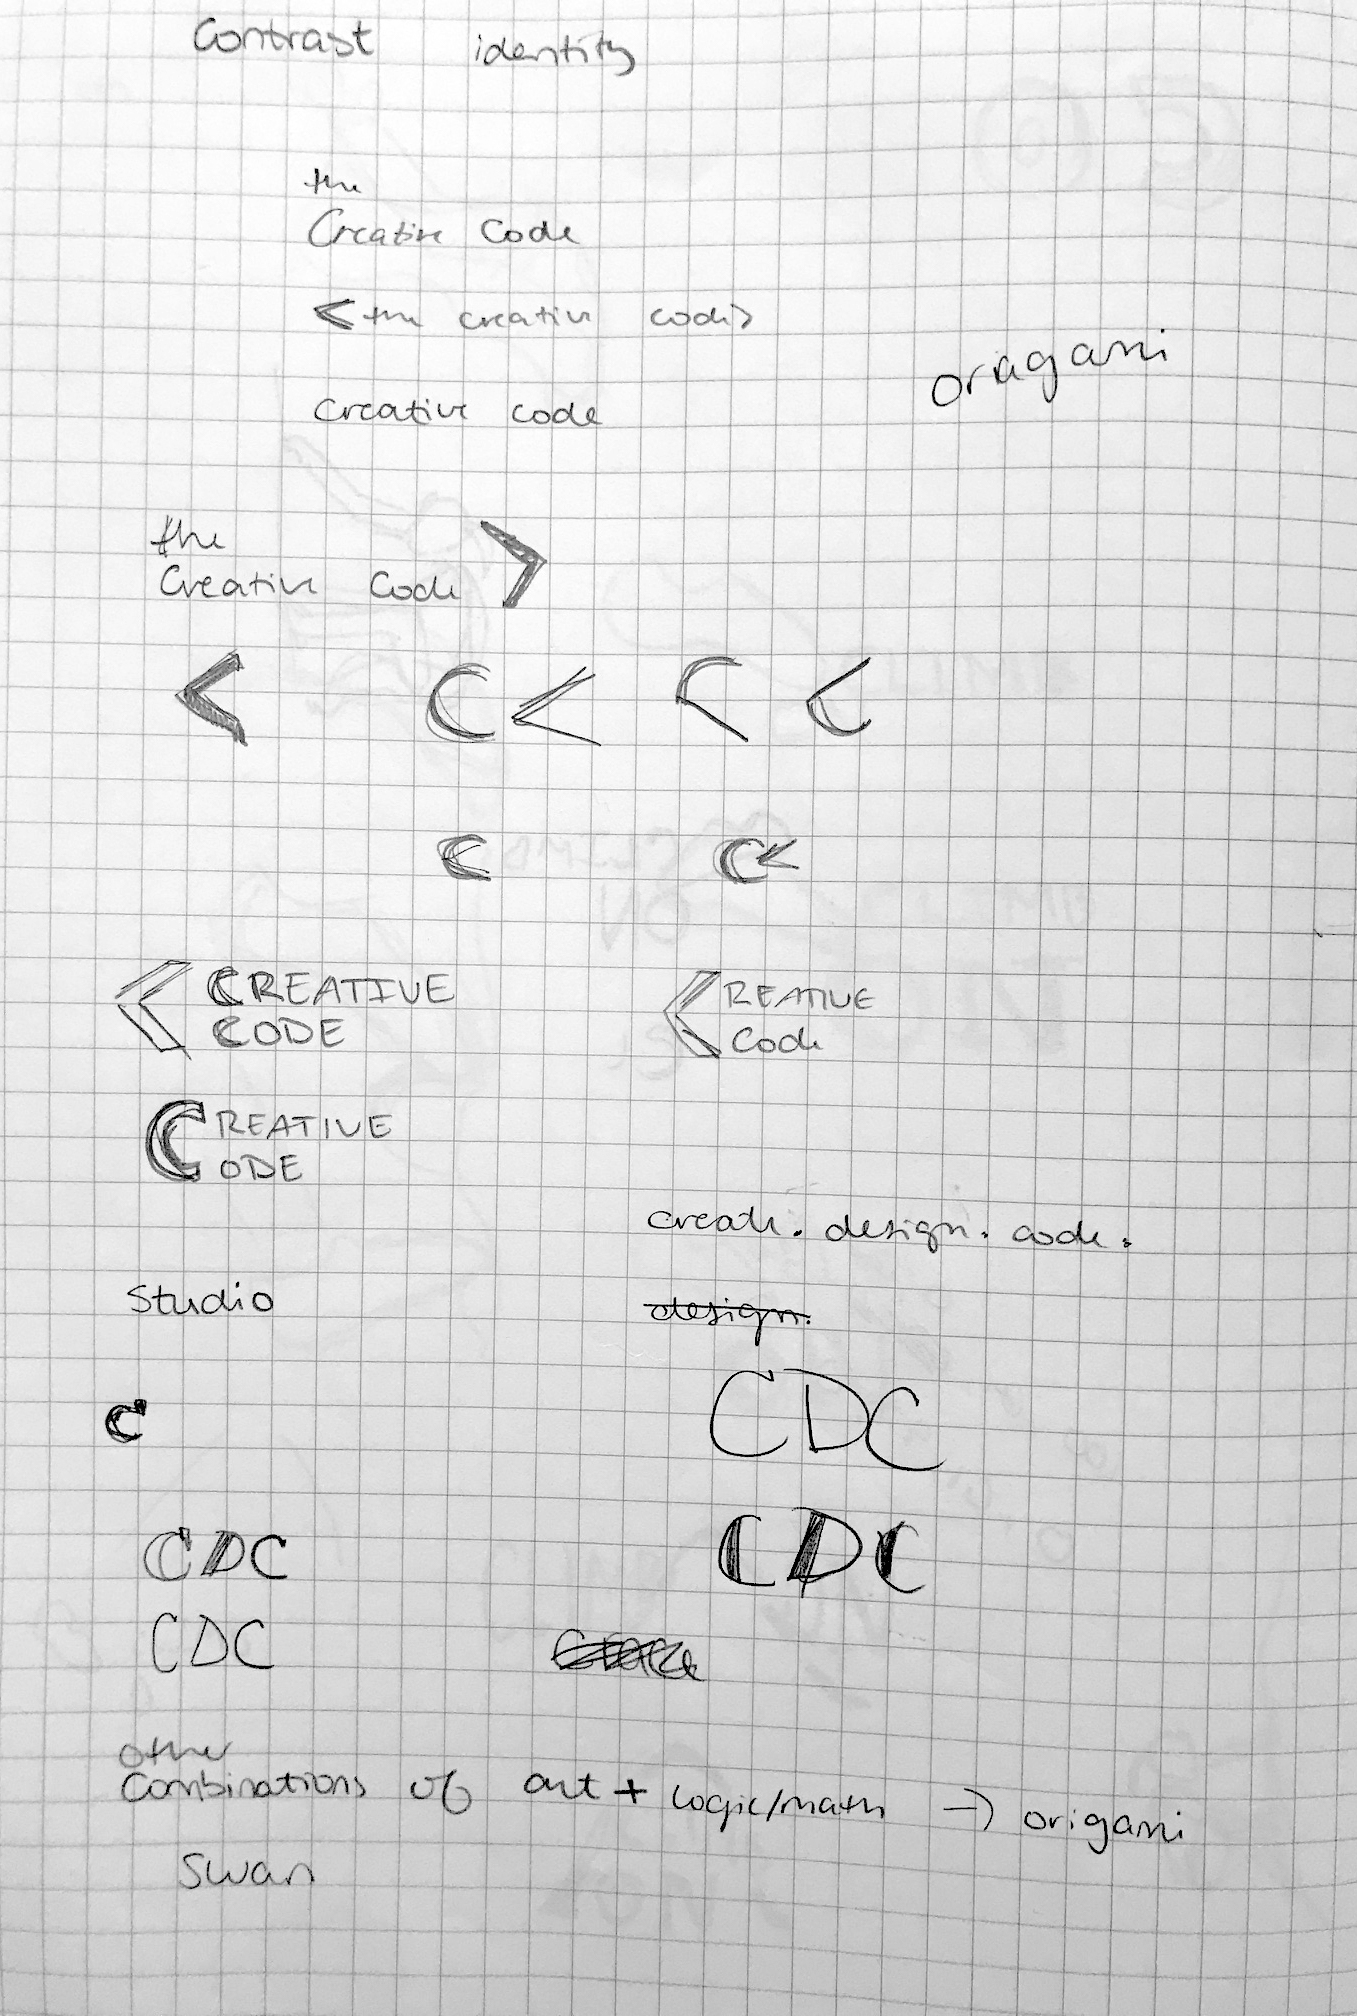 Contrast identity
the
Creative Code
<the creative code>
oragami
Creative code
the
Creative Code >
< C < C C
C C<
< CREATIVE
CODE
<REATIVE
Code
CREATIVE
ODE
create. design. code.
Studio
design.
C
CDC
CDC
CDC
CDC
other
Combinations of art + logic/math → origami
Swan